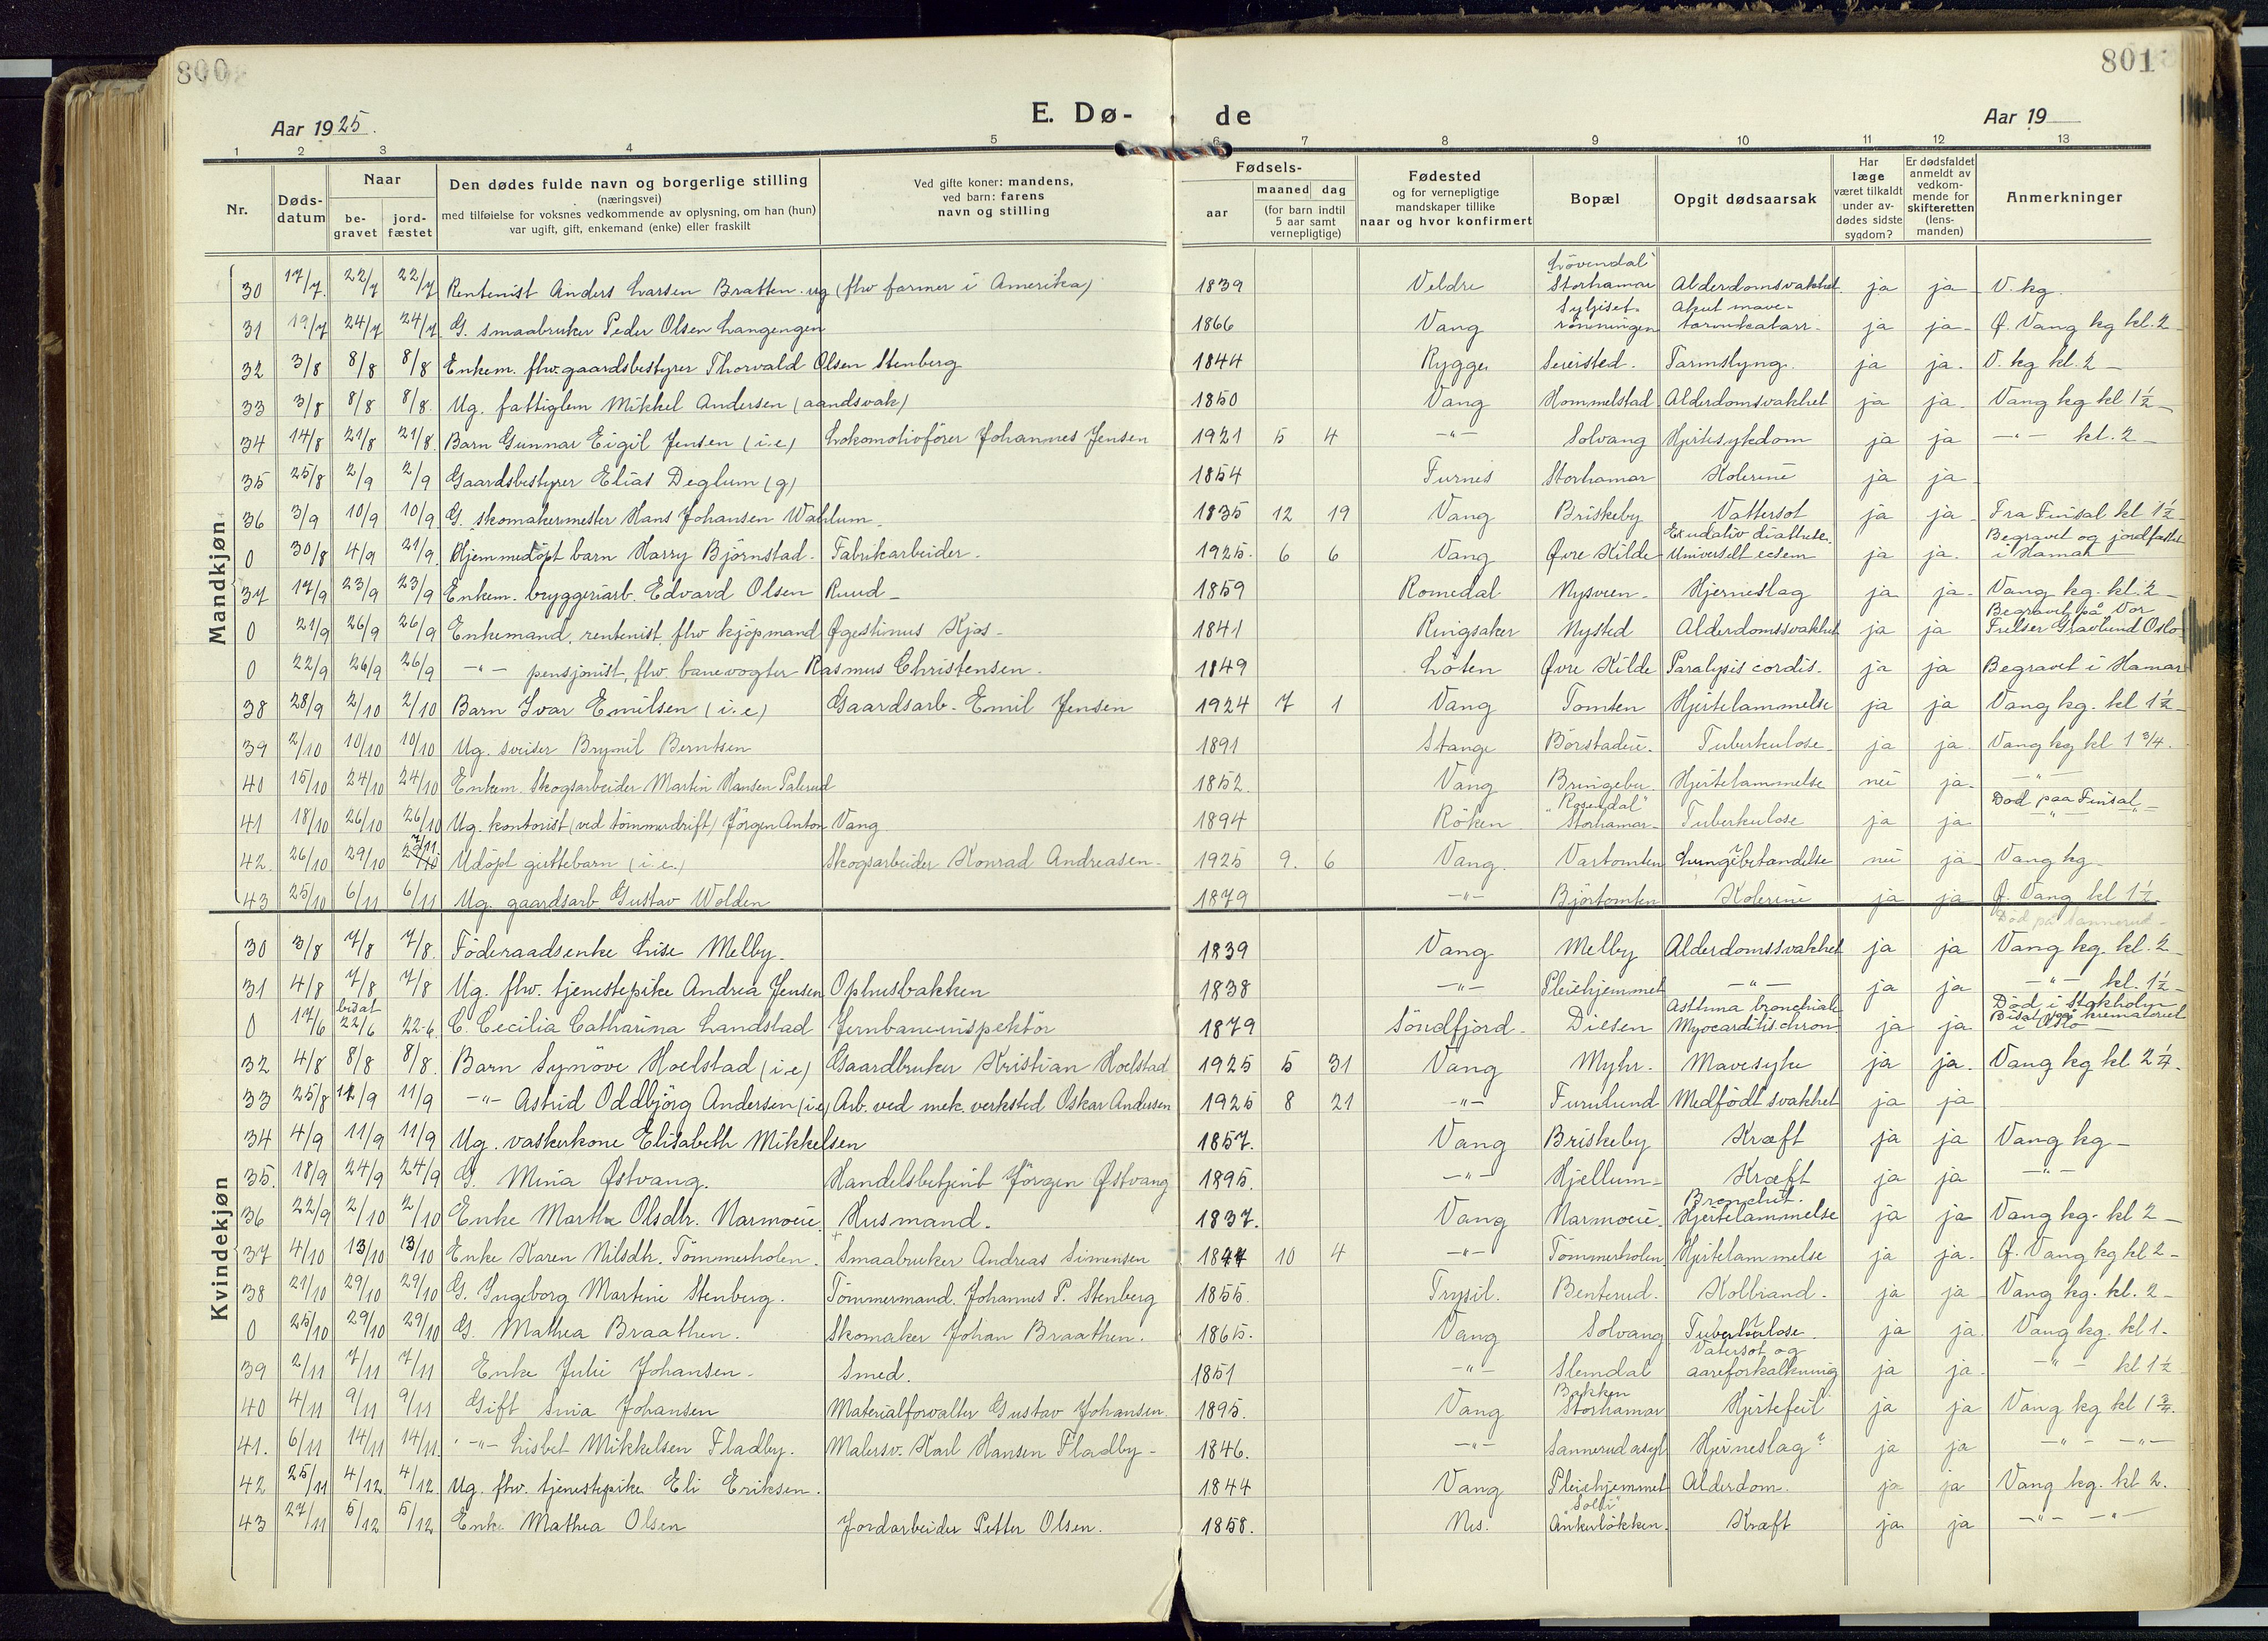 800
801
Aar 1925.
E. Dø-
de
Aar 19
1 2 3 4 5 6 7 8 9 10 11 12 13
Nr.
Døds-datum
Naar
be-gravet
jord-fæstet
Den dødes fulde navn og borgerlige stilling
(næringsvei)
med tilføielse for voksnes vedkommende av oplysning, om han (hun)
var ugift, gift, enkemand (enke) eller fraskilt
Ved gifte koner: mandens,
ved barn: farens
navn og stilling
Fødsels-
aar
maaned dag
(for barn indtil
5 aar samt
vernepligtige)
Fødested
og for vernepligtige
mandskaper tillike
naar og hvor konfirmert
Bopæl
Opgit dødsaarsak
Har
læge
været tilkaldt
under av-
dødes sidste
sygdom?
Er dødsfaldet
anmeldt av
vedkom-
mende for
skifteretten
(lens-
manden)
Anmerkninger
Mandkjøn
30 17/7. 22/7 22/7 Rentenist Anders Larsen Bratten. ug (fhv farmer i Amerika) 1839 Veldre Lövendal Storhamar Alderdomsvakhet. ja ja V. kg.
31 19/7 24/7 24/7. G. smaabruker Peder Olsen Langengen 1866 Vang rönningen Akut mave- tarmkatarr. ja ja Ø. Vang kg kl. 2
32 3/8 8/8 8/8 Enkem. fhv. gaardsbestyrer Thorvald Olsen Stenberg 1844 Rygge Seiersted. Tarmslyng. ja ja. V. kg kl. 2
33 3/8 8/8 8/8. Ug. fattiglem Mikkel Andersen (aandsvak) 1850 Vang Hommelstad Alderdomsvakhet ja ja Vang kg kl 1½
34 14/8 21/8 21/8. Barn Gunnar Eigil Jensen (i.e) Lokomotivförer Johannes Jensen 1921 5 4 -"- Solvang Hjertesykdom ja ja -"- kl. 2
35 25/8 2/9 2/9 Gaardsbestyrer Elias Deglum (g) 1854 Furnes Storhamar Kolerine ja ja
36 3/9 10/9 10/9 G. skomakermester Hans Johansen Wahlum. 1835 12 19 Vang Briskeby Vattersot ja ja Fra Finsal kl 1½
0 30/8 4/9 21/9. Hjemmedöpt barn Harry Björnstad. Fabrikarbeider. 1925. 6 6 Vang Øvre Kilde Exudativ diathese. Universelt ecsem ja ja. Begravet og jordfæstet i Hamar
37 17/9 23/9 23/9 Enkem. bryggeriarb. Edvard Olsen Ruud 1859 Romedal Nysveen. Hjerneslag ja ja Vang kg. kl. 2
0 21/9 26/9 26/9 Enkemand, rentenist fhv kjöpmand Øgestinus Kjos 1841 Ringsaker Nysted Alderdomssvakhet ja ja Begravet på Vor Frelser Gravlund Oslo
0 22/9 26/9 26/9 -"- pensjonist, fhv. banevogter Rasmus Christensen. 1849 Löten Øvre Kilde Paralysis cordis. ja ja Begravet i Hamar
38 28/9 2/10 2/10 Barn Ivar Emilsen (i.e) Gaardsarb. Emil Jensen 1924 7 1 Vang Tomten Hjertelammelse ja ja Vang kg. kl 1½
39 2/10 10/10 10/10 Ug. sveiser Brynil Berntsen 1891 Stange Börstadeie. Tuberkulose ja ja. Vang kg kl 1 3/4.
40 15/10 24/10 24/10 Enkem. Skogsarbeider Martin Hansen Palerud 1852. Vang Bringebu. Hjertelammelse nei ja. -"-
41 18/10 26/10 26/10 Ug. kontorist (ved tömmerdrift) Jörgen Anton Vang 1894 Röken "Rosendal" Storhamar Tuberkulose ja ja Död paa Finsal -"-
42. 26/10 29/10 7/11 Udöpt guttebarn (i.e.) Skogsarbeider Konrad Andreasen. 1925 9. 6 Vang. Vartomten Lungebetændelse nei ja Vang kg
43 25/10 6/11 6/11 Ug. gaardsarb. Gustav Wolden 1879 -"- Björtomten Kolerine ja ja Ø. Vang kl 1½
Kvindekjøn
30 3/8 7/8 7/8. Föderaadsenke Lise Melby. 1839 Vang Melby Alderdomssvakhet ja ja Vang kg. kl. 2
31 4/8 7/8 7/8 Ug. fhv. tjenestepike Andrea Jensen Ophusbakken 1838 -"- Pleiehjemmet -"- ja ja -"- kl. 1½
0 17/6 bisat 22/6 22-6. Cecilia Catharina Landstad Jernbaneinspektör 1879 Söndfjord Diesen Asthma bronchiale Myocarditis chron ja ja Död i Stokholm Bisat på krematoriet i Oslo
32 4/8 8/8 8/8. Barn Synöve Hoelstad (i e) Gaardbruker Kristian Hoelstad 1925 5 31 Vang Myhr. Mavesyke ja ja. Vang kg kl 2¼.
33 25/8 11/9 11/9 -"- Astrid Oddbjörg Andersen (i e) Arb. ved mek. verksted Oskar Andersen 1925 8 21 -"- Furulund Medfödt svakhet ja ja
34 4/9 11/9 11/9 Ug. vaskerkone Elisabeth Mikkelsen 1857. Vang Briskeby Kræft ja ja Vang kg
35. 18/9 24/9 24/9 G. Mina Østvang. Handelsbetjent Jörgen Østvang 1895. -"- Hjellum Kræft ja ja -"-
36 22/9 2/10 2/10 Enke Marthe Olsdtr. Narmoeie. Husmand. 1837. Vang Narmoeie Bronchit. Hjertelammelse ja ja Vang kg. kl 2
37 4/10 13/10 13/10 Enke Karen Nilsdtr. Tömmerholen. Smaabruker Andreas Simensen 1844 10 4 -"- Tömmerholen Hjertelammelse ja ja. Ø. Vang kg kl 2
38 21/10 29/10 29/10 G. Ingeborg Martine Stenberg. Tömmermand. Johannes P. Stenberg 1855. Trysil. Benterud. Kolbrand. ja ja Vang kg. kl. 2
0 25/10 29/10 29/10 G. Mathea Braathen. Skomaker Johan Braathen. 1865. Vang Solvang Tuberkulose. ja ja. Vang kg. kl 1.
39 2/11 7/11 7/11 Enke Julie Johansen. Smed. 1851 -"- Slemdal Vatersot og aareforkalkning ja ja -"- kl 1½
40 4/11 9/11 9/11 Gift Johansen Materialforvalter Gustav Johansen. 1895. Vang Bakken Storhamar Hjertefeil ja ja Vang kg kl 1¾.
41. 6/11 14/11 14/11. -"- Lisbet Mikkelsen Fladby. Malersv. Karl Hansen Fladby 1846. -"- Sannerud asyl Hjerneslag? ja ja -"- -"-
42 25/11 4/12 4/12. Ug. fhv. tjenestepike Eli Eriksen. 1844 Vang Pleiehjemmet Alderdom. ja ja Vang kg. kl 2.
43 27/11 5/12 5/12 Enke Mathea Olsen Jordarbeider Petter Olsen. 1858. Nes. Ankerlökken. Kræft ja ja -"- -"-